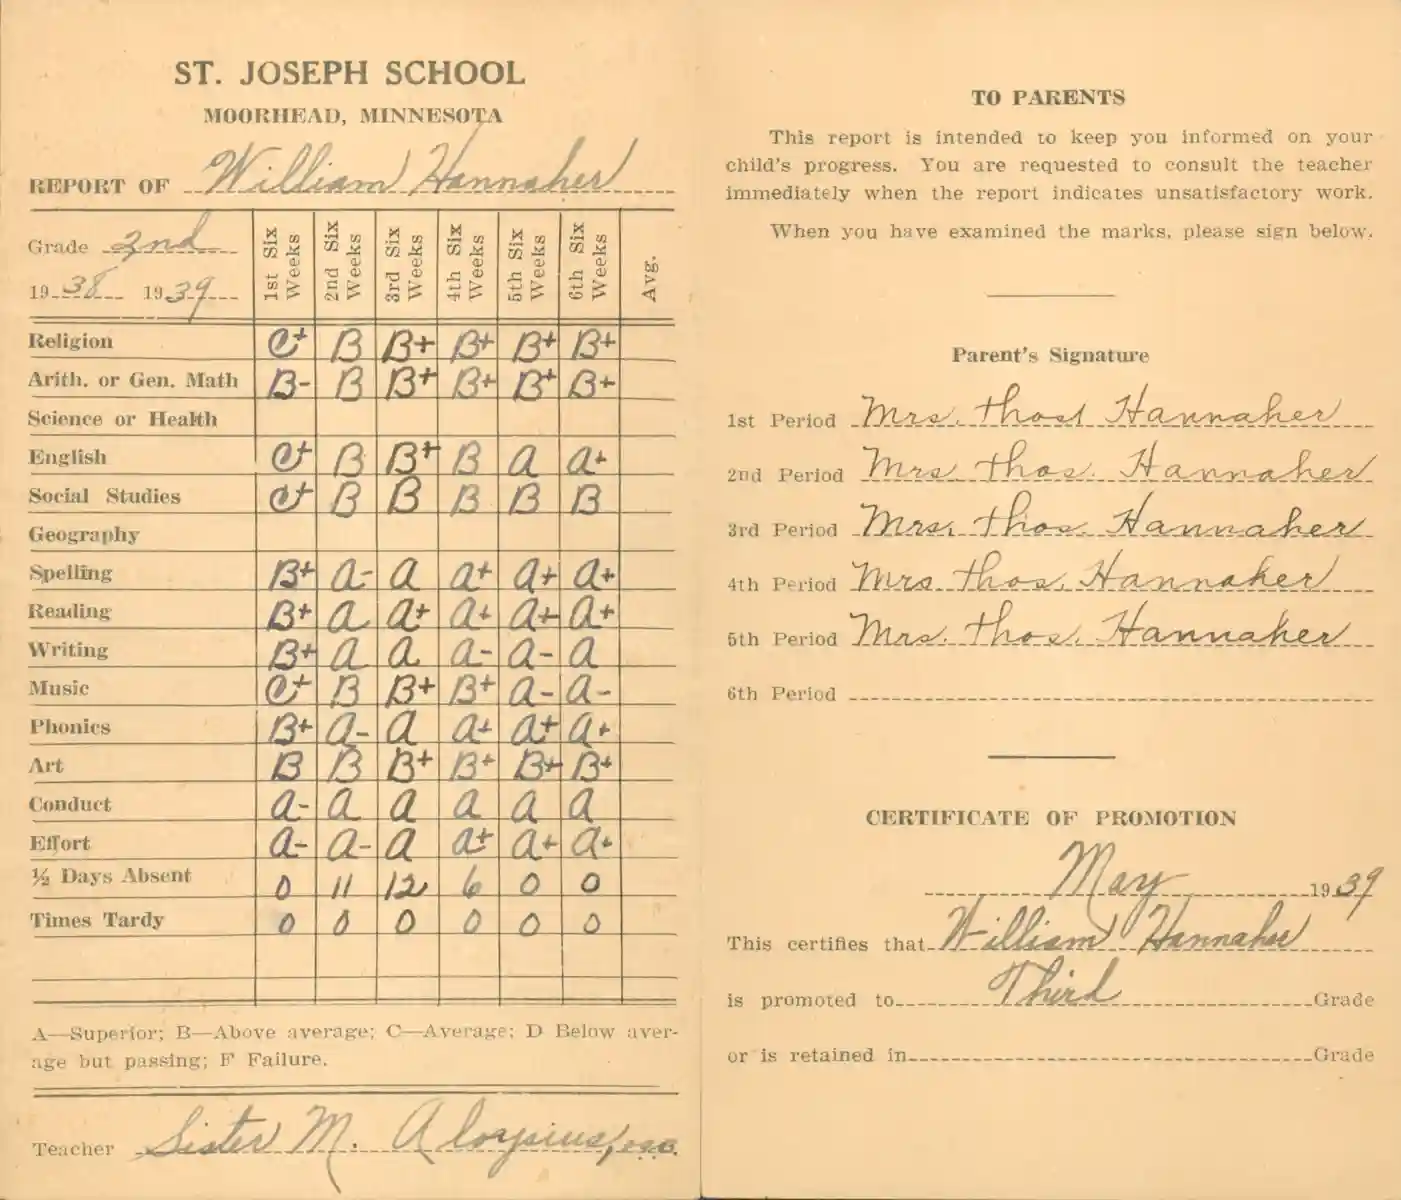 ST. JOSEPH SCHOOL
MOORHEAD, MINNESOTA
REPORT OF William Hannaher
Grade 2nd
1938 1939
1st Six Weeks 2nd Six Weeks 3rd Six Weeks 4th Six Weeks 5th Six Weeks 6th Six Weeks Avg.
Religion C+ B B+ B+ B+ B+
Arith. or Gen. Math B- B B+ B+ B+ B+
Science or Health
English C+ B B+ B A A+
Social Studies C+ B B B B B
Geography
Spelling B+ A- A A+ A+ A+
Reading B+ A A+ A+ A+ A+
Writing B+ A A A- A- A
Music C+ B B+ B+ A- A-
Phonics B+ A- A A+ A+ A+
Art B B B+ B+ B+ B+
Conduct A- A A A A A
Effort A- A- A A+ A+ A+
½ Days Absent 0 11 12 6 0 0
Times Tardy 0 0 0 0 0 0
A—Superior; B—Above average; C—Average; D Below aver-
age but passing; F Failure.
Teacher Sister M. Aloysius, O.S.B.
TO PARENTS
This report is intended to keep you informed on your
child's progress. You are requested to consult the teacher
immediately when the report indicates unsatisfactory work.
When you have examined the marks, please sign below.
Parent's Signature
1st Period Mrs. Thos Hannaher
2nd Period Mrs Thos. Hannaher
3rd Period Mrs. Thos. Hannaher
4th Period Mrs Thos. Hannaher
5th Period Mrs. Thos. Hannaher
6th Period
CERTIFICATE OF PROMOTION
May 1939
This certifies that William Hannaher
is promoted to Third Grade
or is retained in Grade